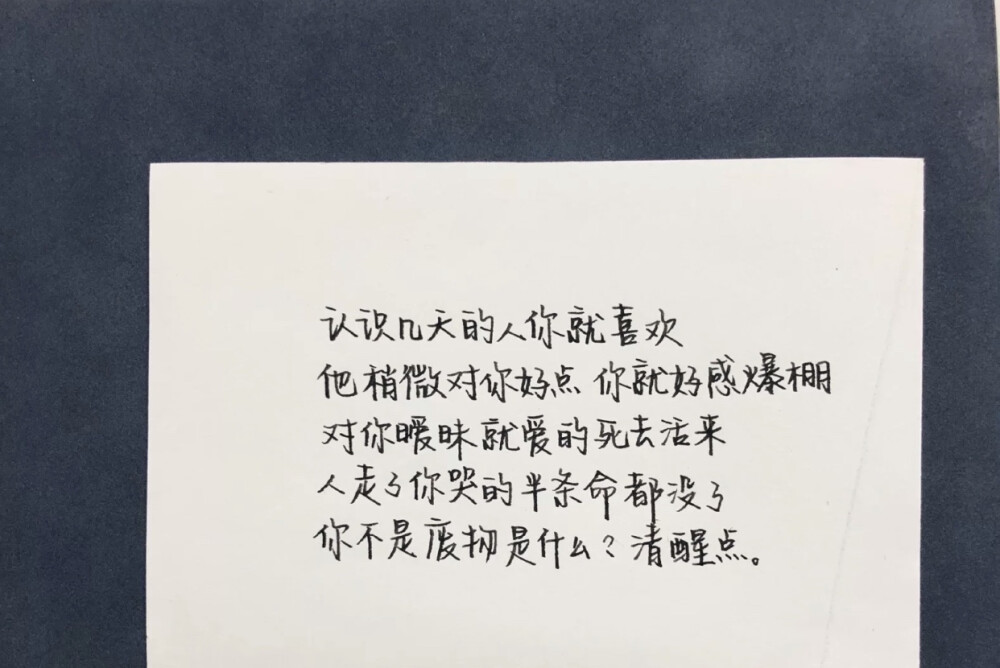 认识几天的人你就喜欢
他稍微对你好点 你就好感爆棚
对你暧昧就爱的死去活来
人走了你哭的半条命都没了
你不是废物是什么？清醒点。